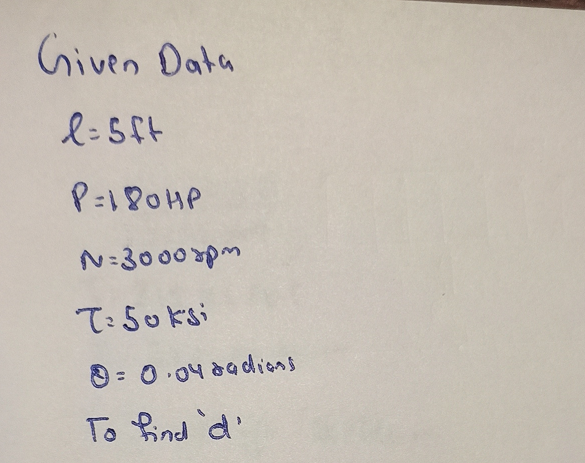 Given Data
l=5ft
P=180HP
N=3000rpm
τ=50ksi
θ=0.04radians
To find 'd'